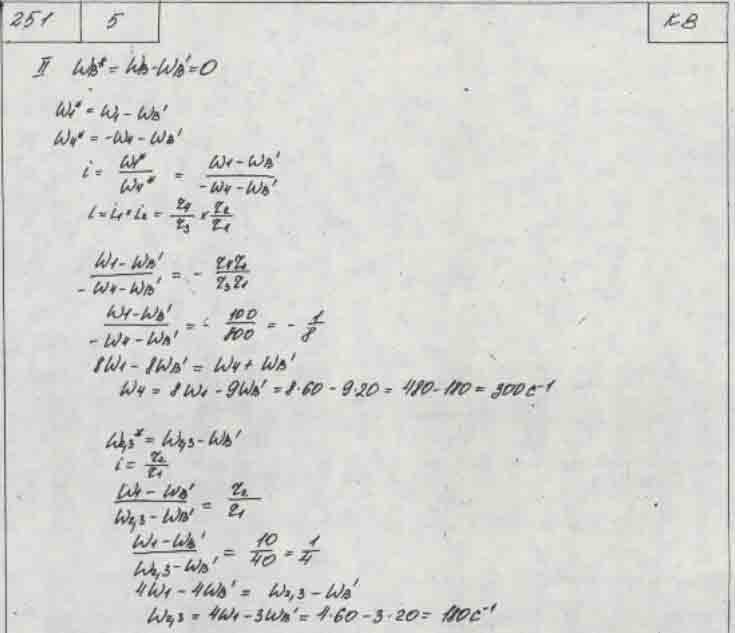 251 5 КВ
II ωB* = ωB - ωB' = 0
ω1* = ω1 - ωB'
ω4* = -ω4 - ωB'
i = ω1*/ω4* = (ω1 - ωB')/(-ω4 - ωB')
i = i1 * i2 = z4/z3 * z2/z1
(ω1 - ωB')/(-ω4 - ωB') = - z4z2/z3z1
(ω1 - ωB')/(-ω4 - ωB') = - 100/800 = - 1/8
8ω1 - 8ωB' = ω4 + ωB'
ω4 = 8ω1 - 9ωB' = 8·60 - 9·20 = 480 - 180 = 300 c-1
ω2,3* = ω2,3 - ωB'
i = z2/z1
(ω1 - ωB')/(ω2,3 - ωB') = z2/z1
(ω1 - ωB')/(ω2,3 - ωB') = 10/40 = 1/4
4ω1 - 4ωB' = ω2,3 - ωB'
ω2,3 = 4ω1 - 3ωB' = 4·60 - 3·20 = 180 c-1